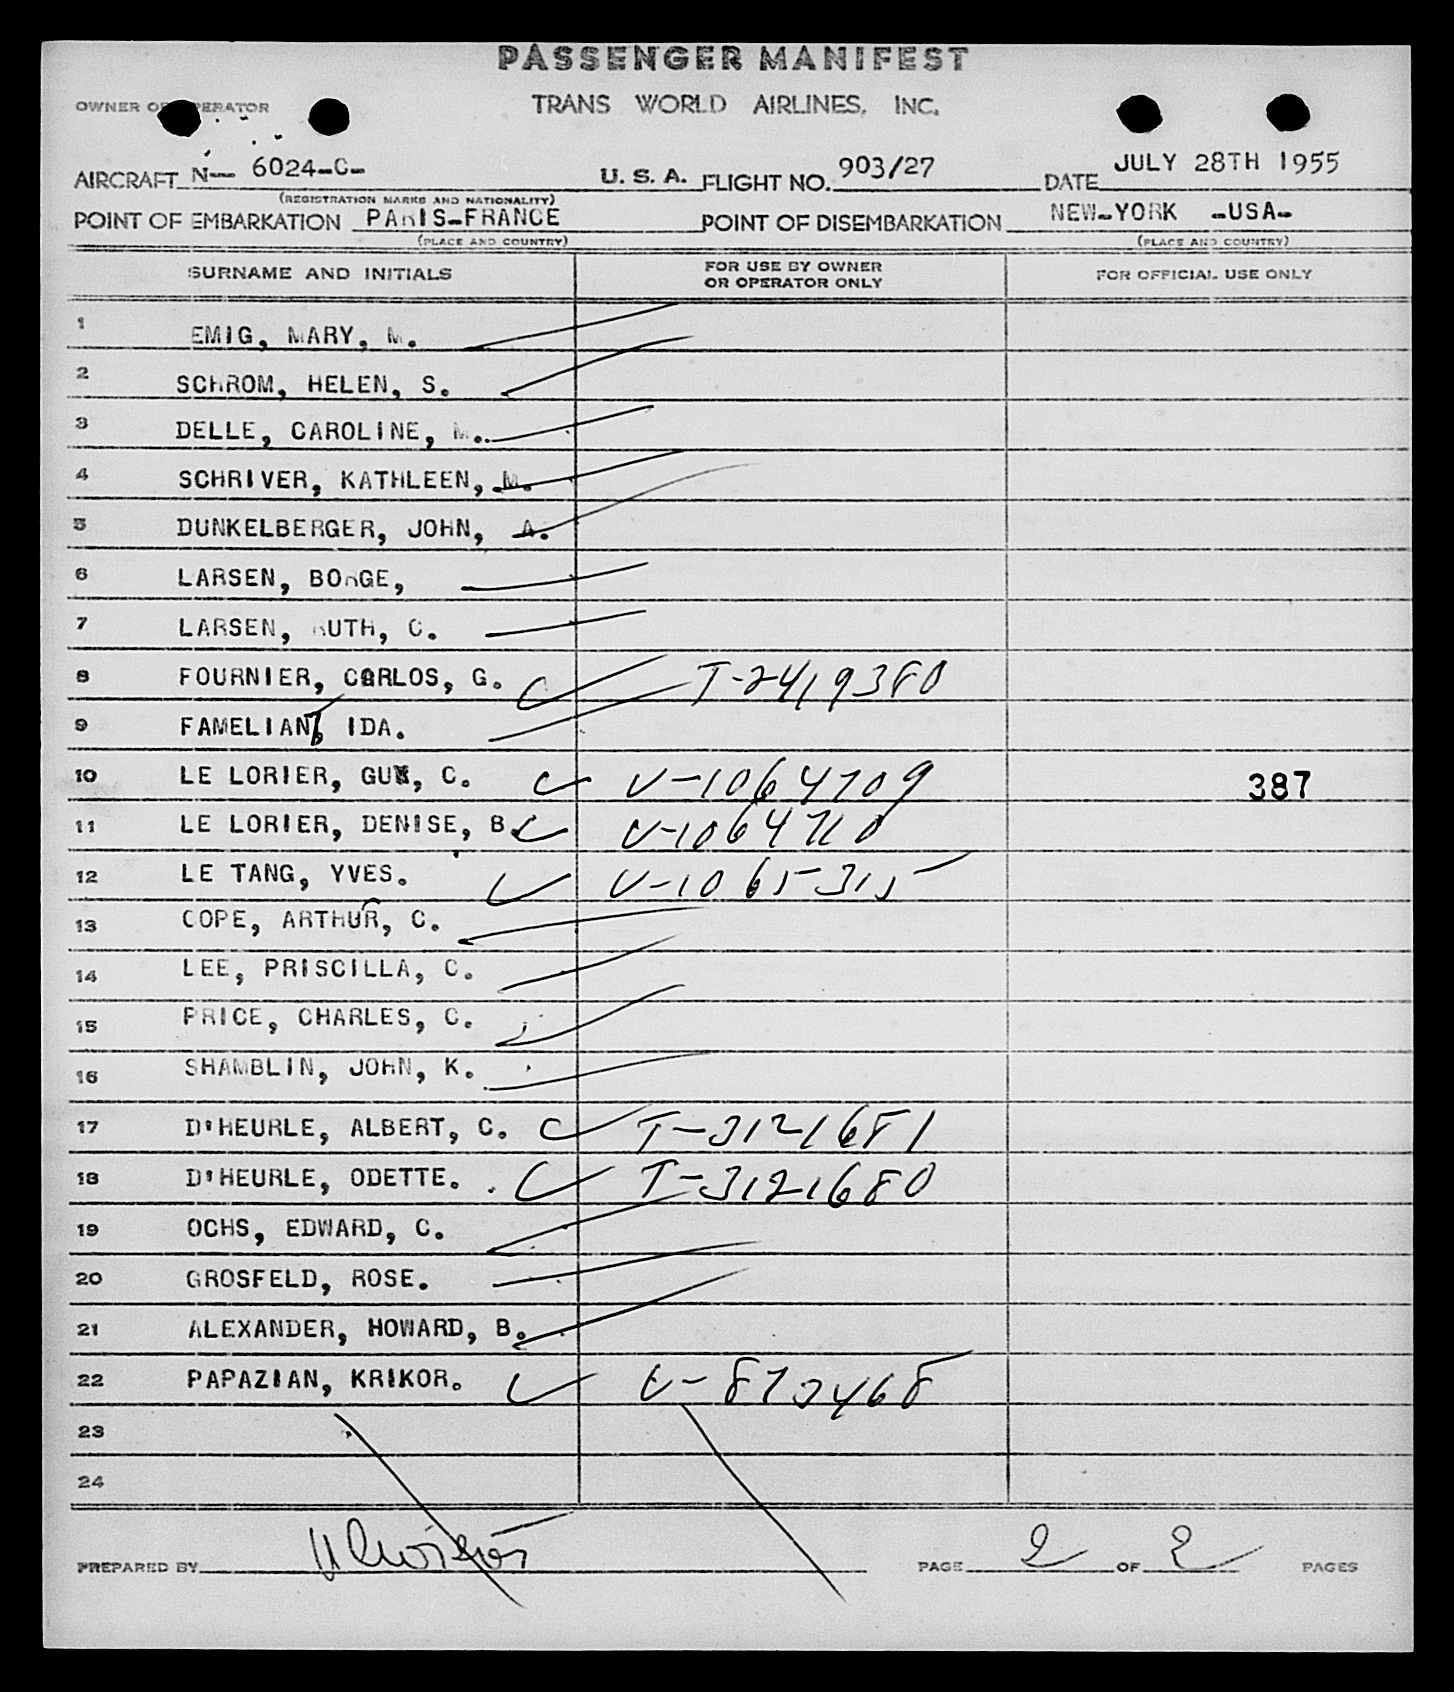 PASSENGER MANIFEST
OWNER OR OPERATOR TRANS WORLD AIRLINES, INC.
AIRCRAFT N-- 6024-C- U. S. A. FLIGHT NO. 903/27 DATE JULY 28TH 1955
(REGISTRATION MARKS AND NATIONALITY)
POINT OF EMBARKATION PARIS-FRANCE POINT OF DISEMBARKATION NEW-YORK -USA-
(PLACE AND COUNTRY) (PLACE AND COUNTRY)
SURNAME AND INITIALS FOR USE BY OWNER OR OPERATOR ONLY FOR OFFICIAL USE ONLY
1 EMIG, MARY, M.
2 SCHROM, HELEN, S.
3 DELLE, CAROLINE, M.
4 SCHRIVER, KATHLEEN, M.
5 DUNKELBERGER, JOHN, A.
6 LARSEN, BORGE,
7 LARSEN, RUTH, C.
8 FOURNIER, CARLOS, G. C T-2419380
9 FAMELIAN, IDA.
10 LE LORIER, GUY, C. C V-1064709 387
11 LE LORIER, DENISE, B. C V-1064710
12 LE TANG, YVES. V-1065315
13 COPE, ARTHUR, C.
14 LEE, PRISCILLA, C.
15 PRICE, CHARLES, C.
16 SHAMBLIN, JOHN, K.
17 D'HEURLE, ALBERT, C. C T-3121681
18 D'HEURLE, ODETTE. C T-3121680
19 OCHS, EDWARD, C.
20 GROSFELD, ROSE.
21 ALEXANDER, HOWARD, B.
22 PAPAZIAN, KRIKOR. V-873468
23
24
PREPARED BY PAGE 2 OF 2 PAGES